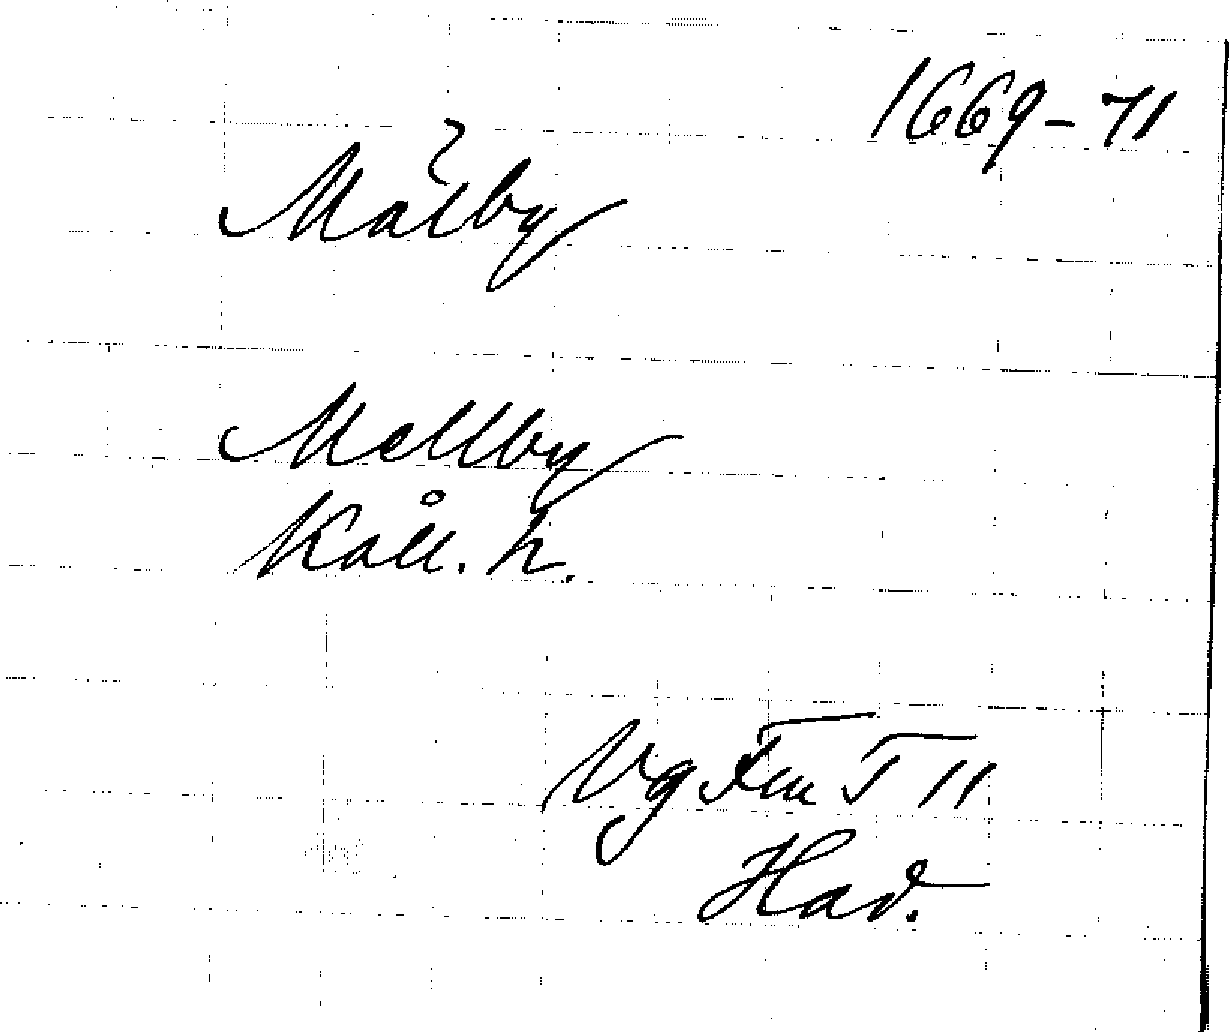 1669-71
Målby
Mellby
Kåll. h.
Vg Fem T 11
Had.